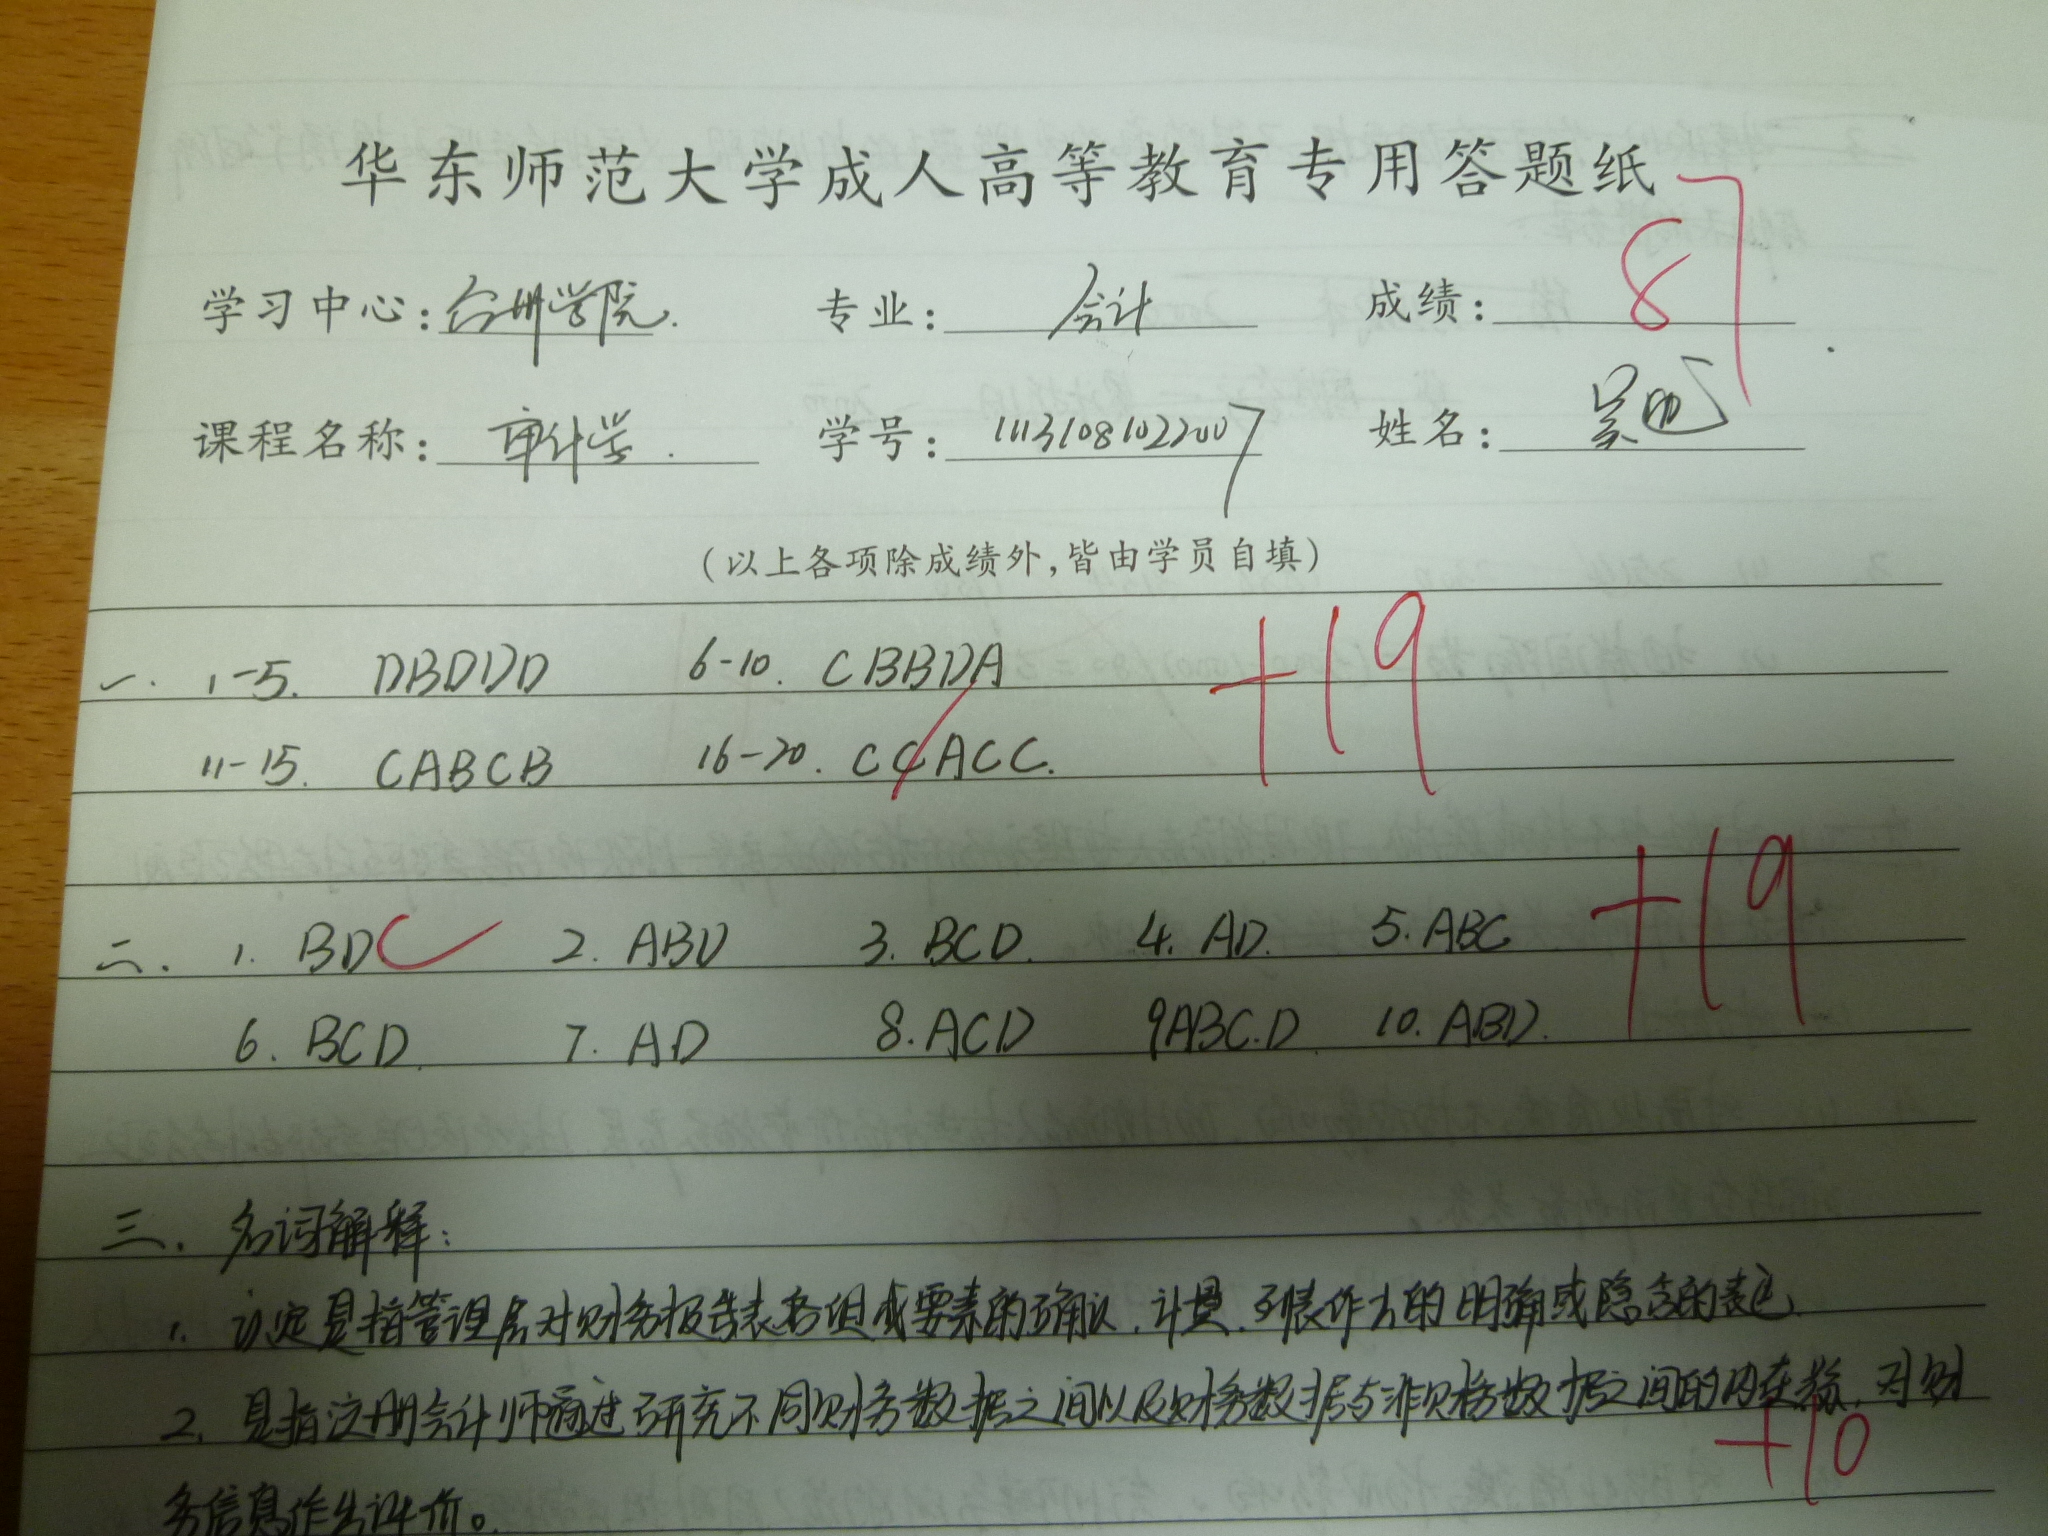 华东师范大学成人高等教育专用答题纸
学习中心: 台州学院. 专业: 会计 成绩: 87
课程名称: 审计学. 学号: 11131081022007 姓名: 吴
(以上各项除成绩外,皆由学员自填)
一. 1-5. DBDDD 6-10. CBBDA +19
11-15. CABCB 16-20. CCACC.
二. 1. BDC 2. ABD 3. BCD. 4. AD. 5. ABC +19
6. BCD. 7. AD 8. ACD 9ABC.D. 10. ABD.
三. 名词解释:
1. 认定是指管理层对财务报告表各组成要素的确认.计量.列表作出的明确或隐含的表达.
2. 是指注册会计师通过研究不同财务数据之间以及财务数据与非财务数据之间的内在联系.对财
+10
务信息作出评价。